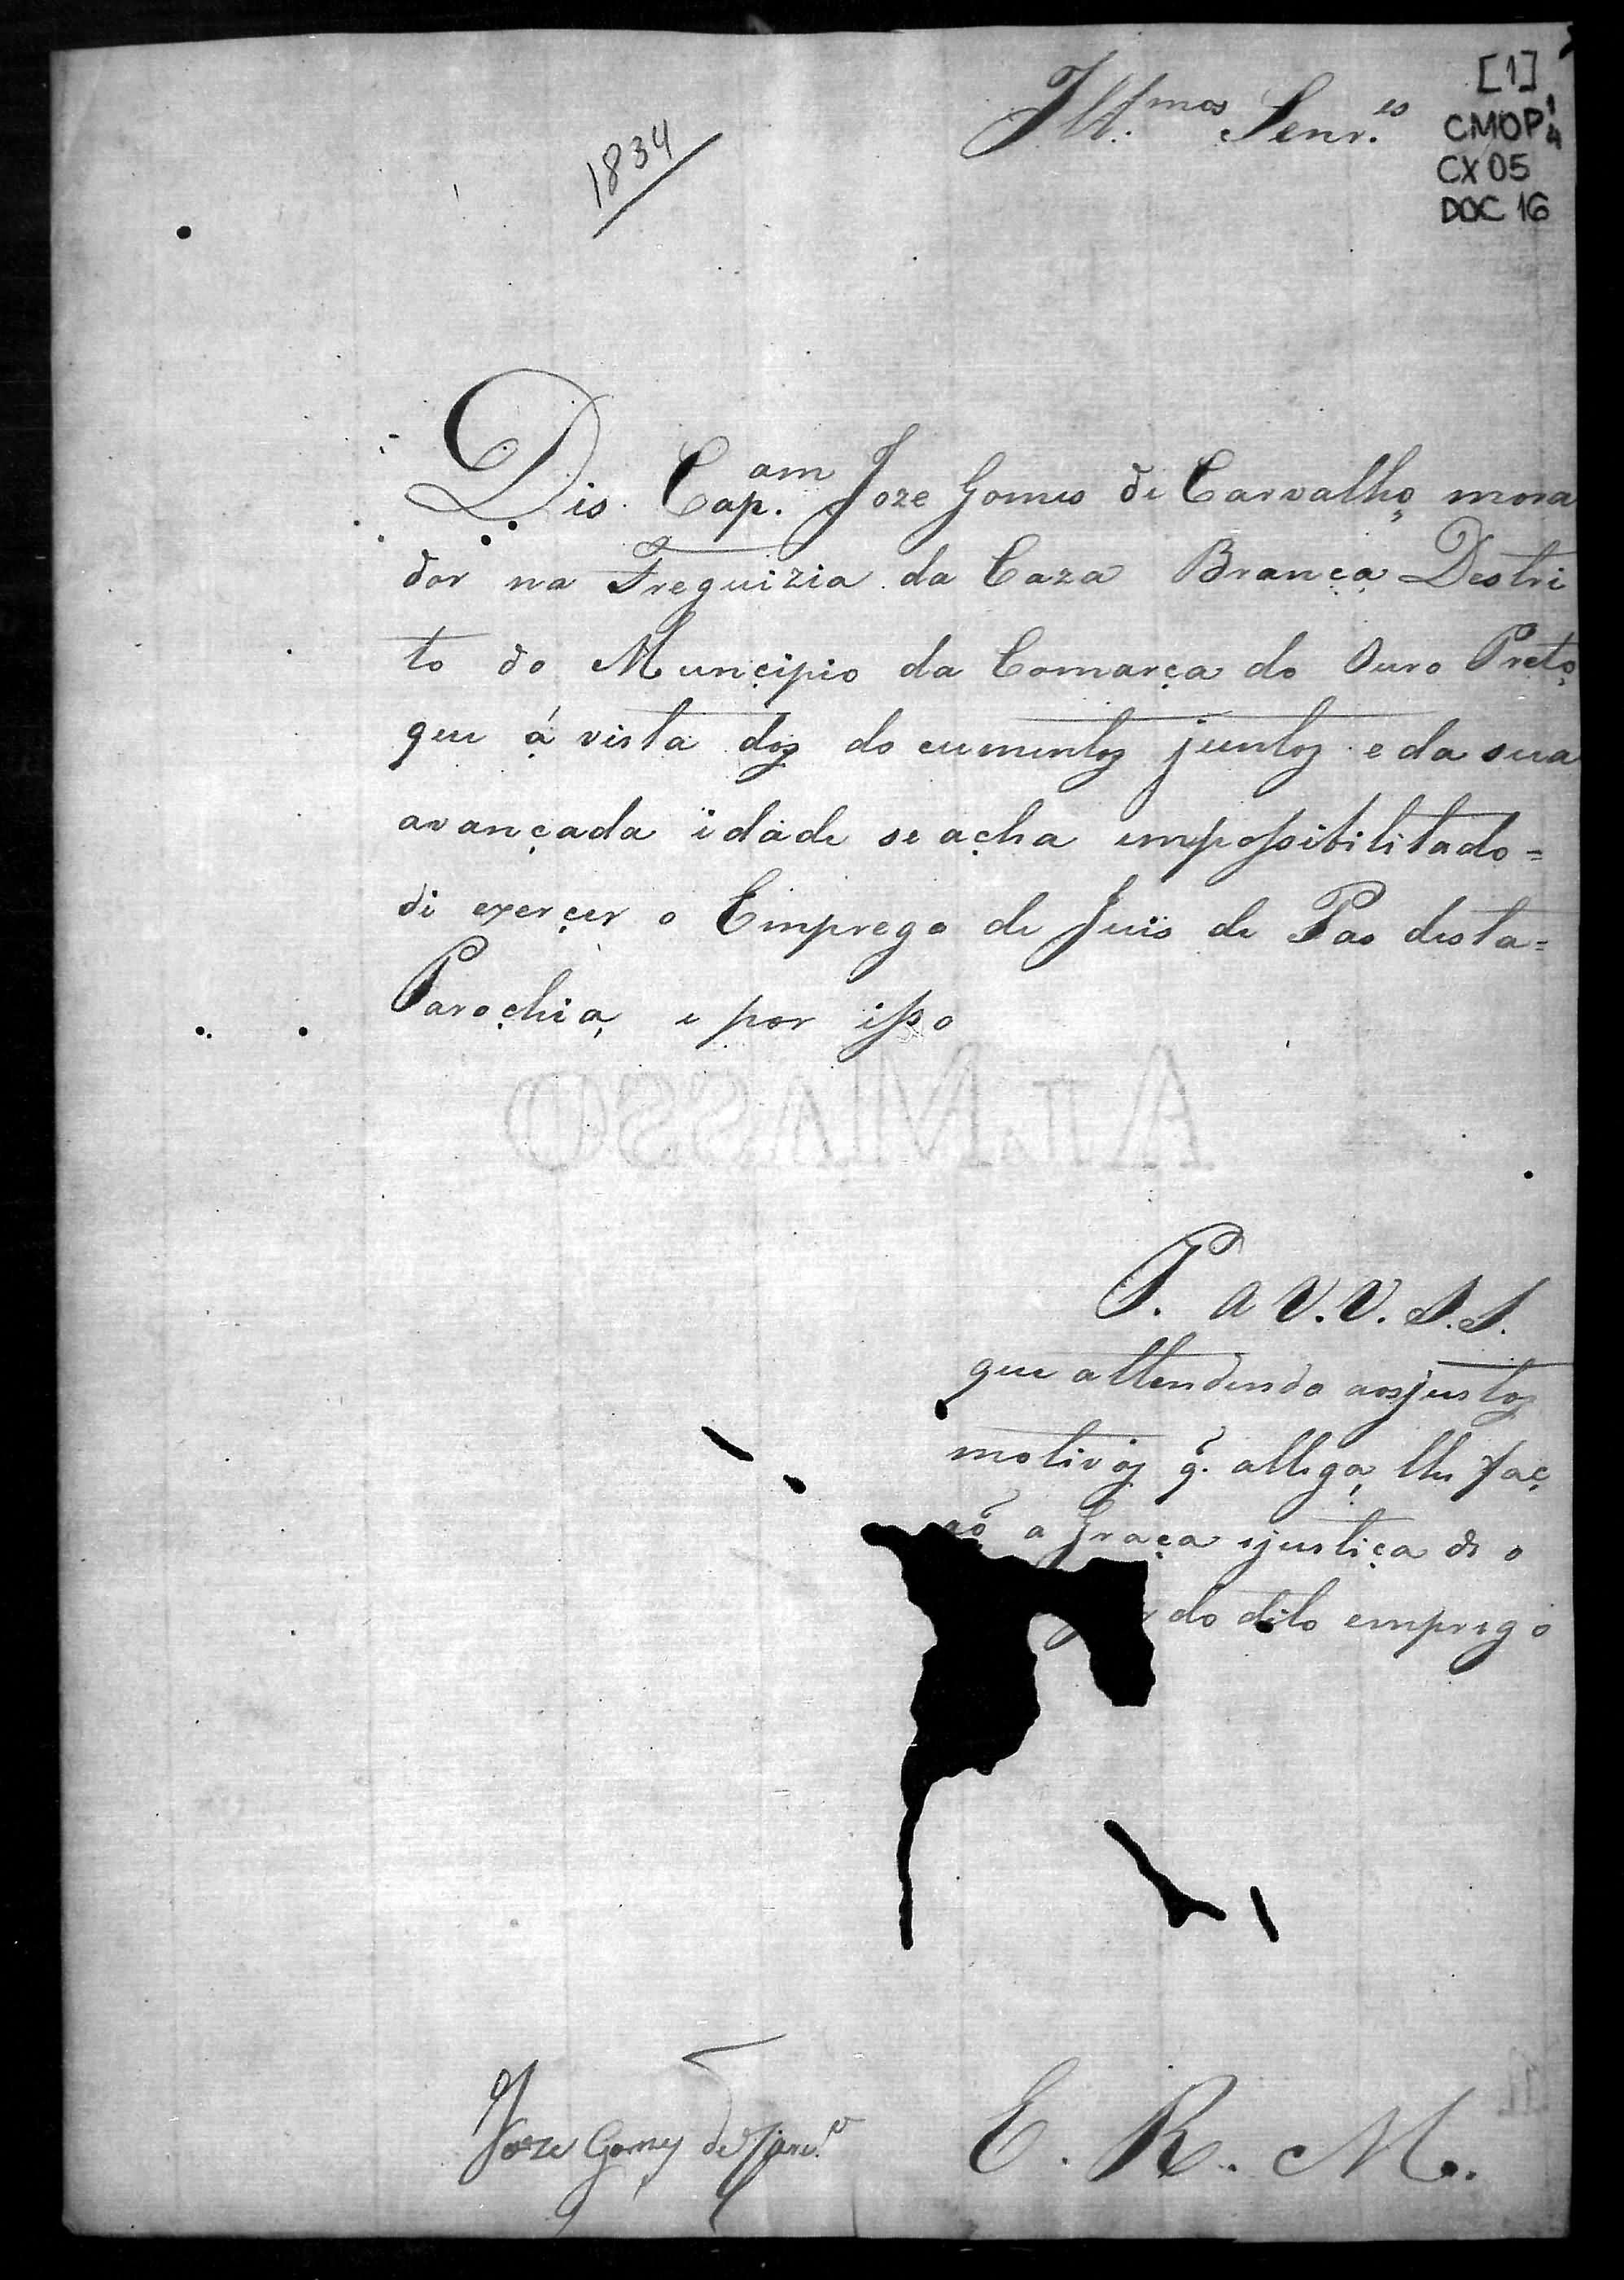 [1]
CMOP 1/4
CX 05
DOC 16
1834
Ill.mos Senr.es
Dis Cap.am Joze Gomes de Carvalho mora
dor na Freguizia da Caza Branca Destri
to do Muncipio da Comarca do Ouro Preto,
que á vista dos documentos juntos e da sua
avançada idade se acha empossibilitado=
di exerçer o Emprego de Juis de Pas desta=
Parochia, e por isso
AL MASSO
P. a V.V. S.S.
que attendendo aos justos
motivos q̃. allega, lhe faç
aõ a Graça ejustiça de o
do dito emprego
E. R. M.
Joze Gomes de